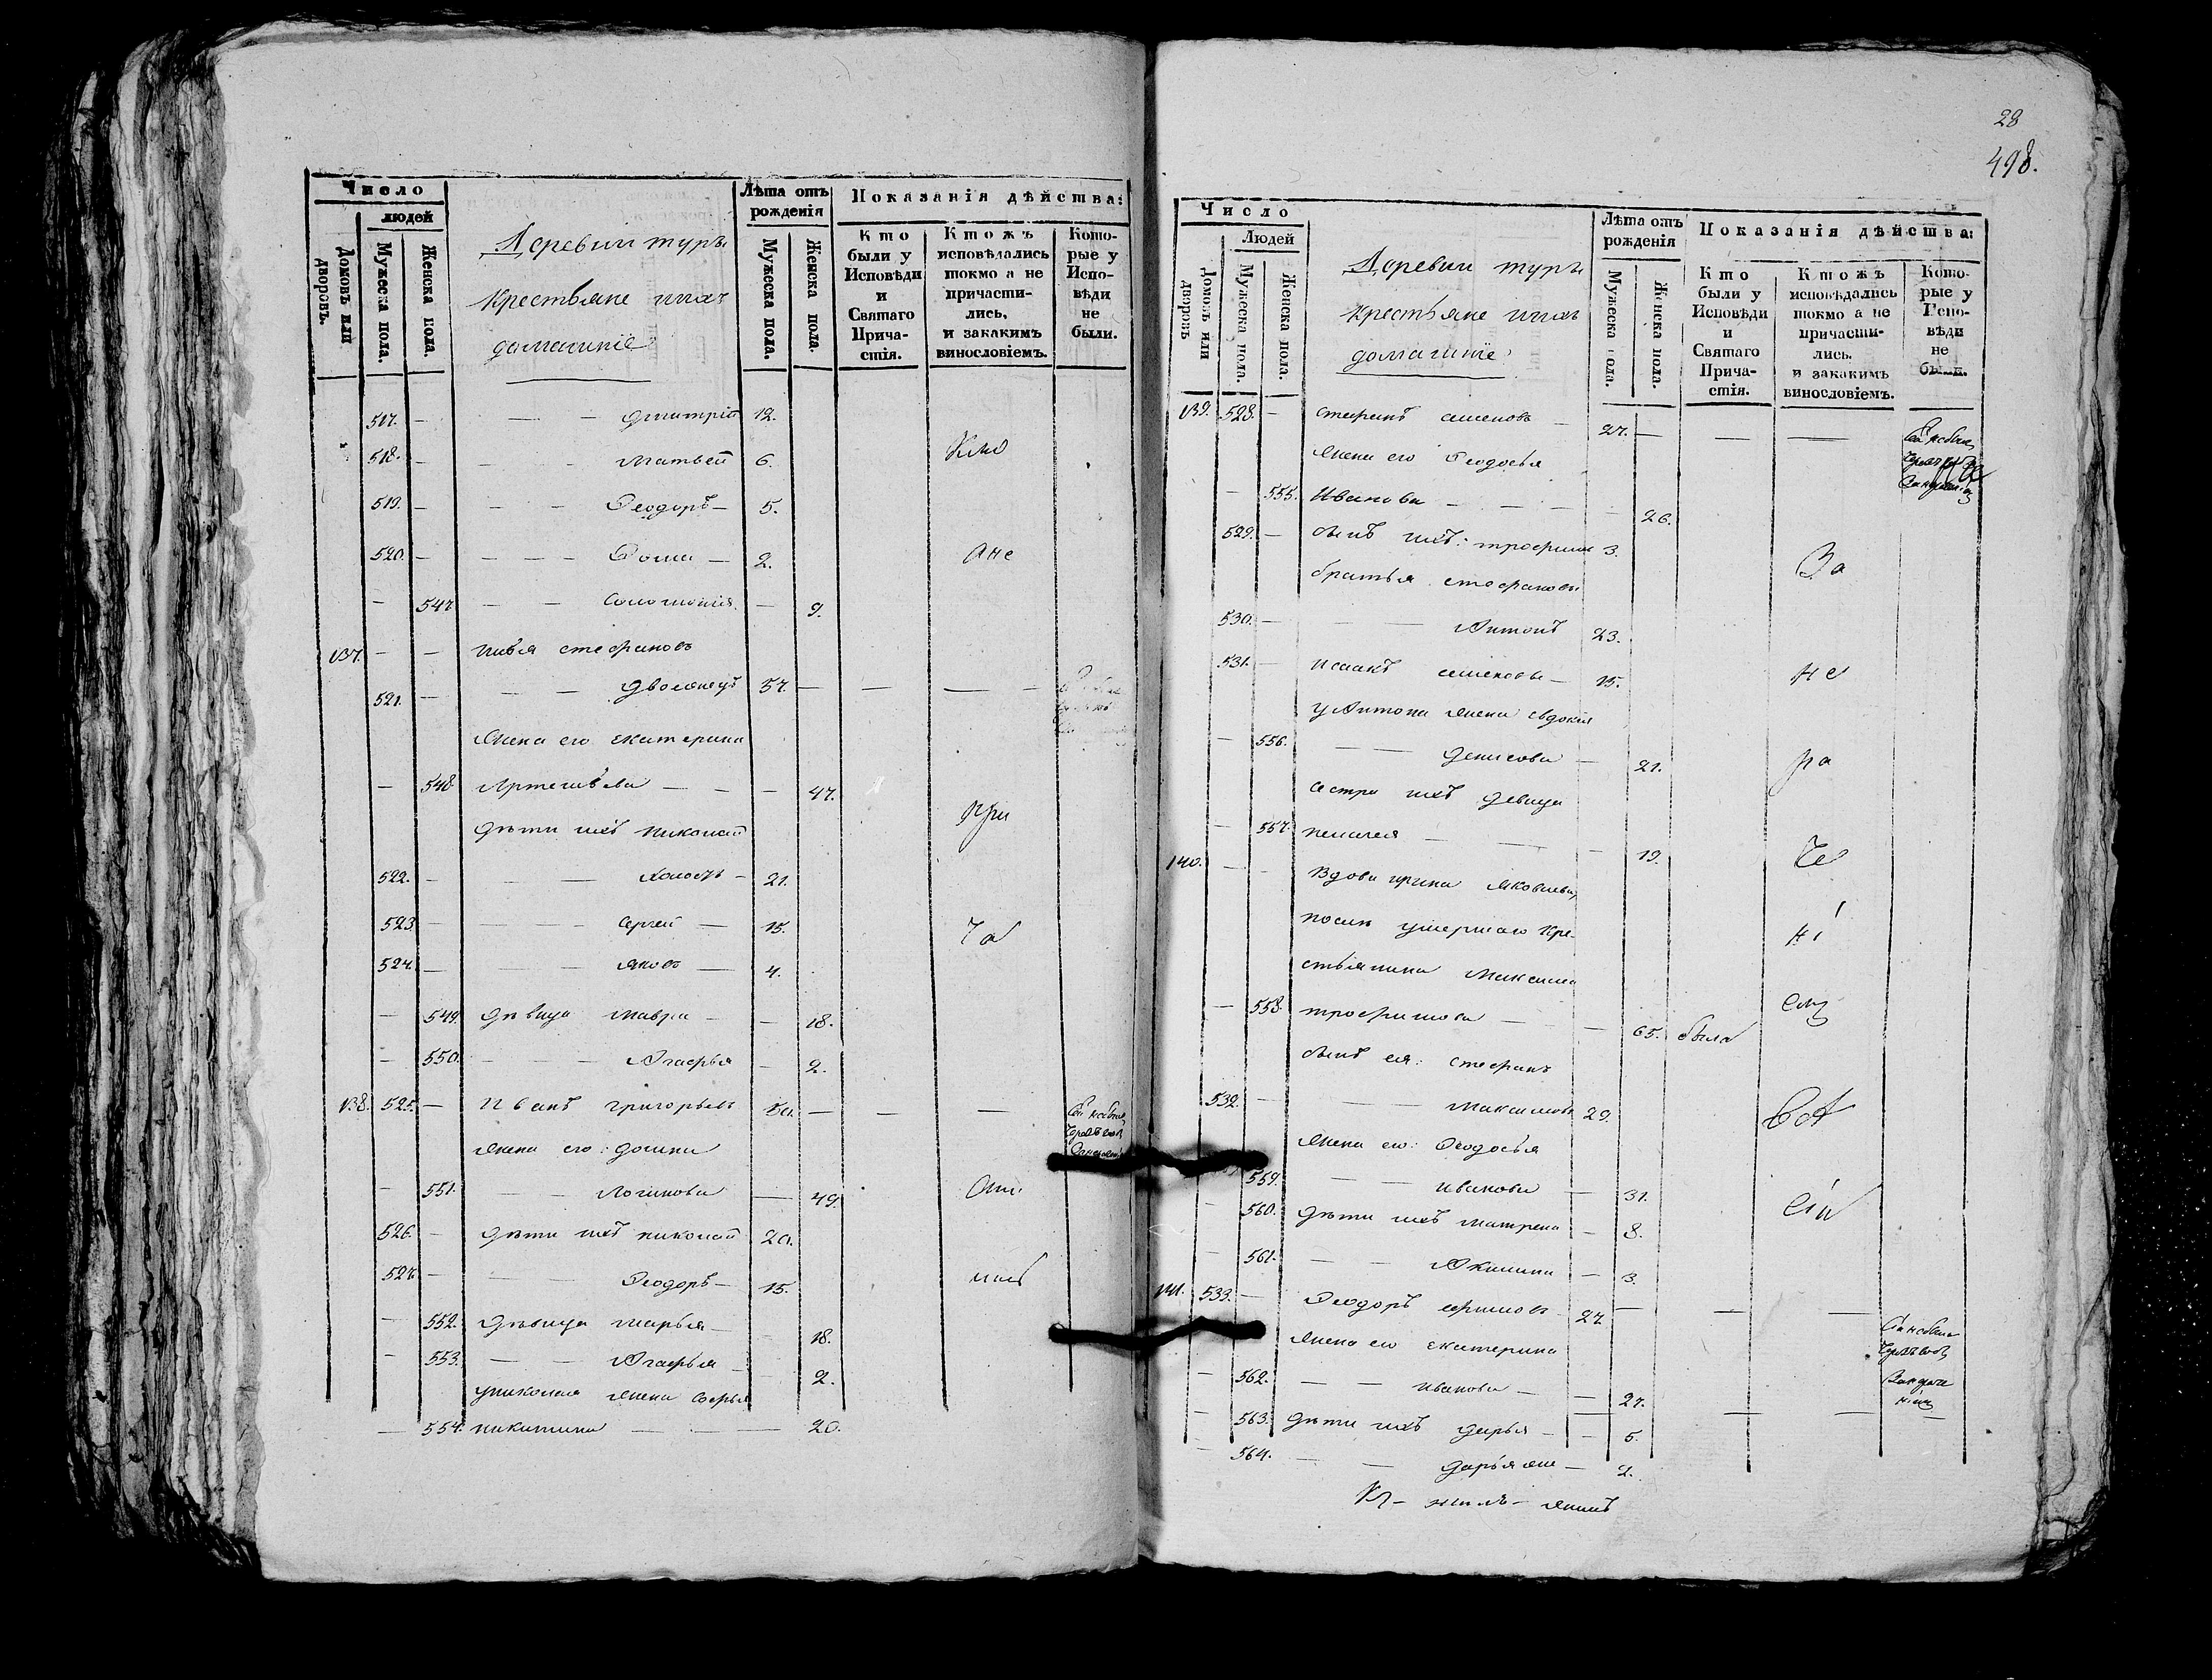 Число
людей
Домовъ или дворовъ.
Мужеска пола.
Женска пола.
Деревни туръ
крестьяне ихъ
домашніе
Лѣта отъ рожденія
Мужеска пола.
Женска пола.
Показанія дѣйства:
Кто были у Исповѣди и Святаго Прича-стія.
Ктожъ исповѣдались токмо а не причасти-лись, и закакимъ винословіемъ.
Кото-рые у Испо-вѣди не были.
517. — — — Дмитрій 12.
518. — — — Матвей 6.
519. — — — Ѳеодоръ — 5.
520. — — — Ѳома — 2. Ане
— 547 — — Соломонія — 9.
137. — — Илья стефановъ
521. — — — Двоежецъ 57. — — —
жена его екатерина
— 548 Артемьева — — — 47.
Дѣти ихъ николай При
522. — — — холостъ — 21.
523 — — — — сергей — 15. Ча
524. — — — яковъ — 4.
— 549. Дѣвица мавра — — 18.
— 550. — — — Агафья — 2.
138. 525. — Иванъ григорьевъ 50. — — —
жена его: домна
— 551. — — логинова — 49.
526. — Дѣти ихъ николай 20.
527. — — — Ѳеодоръ — 15.
— 552. Дѣвица марья — 18.
— 553. — — Агафья — 2.
униколая жена софья
— 554. никитина — — — 20.
28
498.
Число
Людей
Домовъ или дворовъ
Мужеска пола.
Женска пола.
Деревни туръ
крестьяне ихъ
домашніе
Лѣта отъ рожденія
Мужеска пола.
Женска пола.
Показанія дѣйства:
Кто были у Исповѣди и Святаго Прича-стія.
Ктожъ исповѣдались токмо а не причасти-лись. и закакимъ винословіемъ.
Кото-рые у Испо-вѣди не были.
139. 528. — стефанъ семеновъ — 27. — — —
жена его Ѳеодосья
— 555. Иванова — — — 26.
529. — сынъ ихъ: трофимъ 3. За
братья стефановы
530. — — — Антонъ 23.
531. — исаакъ семеновы — 15. не
у Антона жена евдокія
— 556. — — денисова — 21. ра
сестра ихъ девица
— 557. пелагея — — — 19. че
140. — — Вдова ирина яковлева,
послѣ умершаго кре- ні
стьянина максима
— 558. трофимова — — 65. была емъ
сынъ ея: стефанъ
532. — — — максимовъ 29.
жена его: Ѳеодосья
559. — — иванова — 31.
— 560. Дѣти ихъ матрена — 8.
— 561. — — Акилина — 3.
141. 533. — Ѳеодоръ ефимовъ 27. — — —
жена его екатерина
— 562. — — иванова — — 27.
— 563. Дѣти ихъ дарья — — 5. — — —
— 564. — — дарья же — 2.